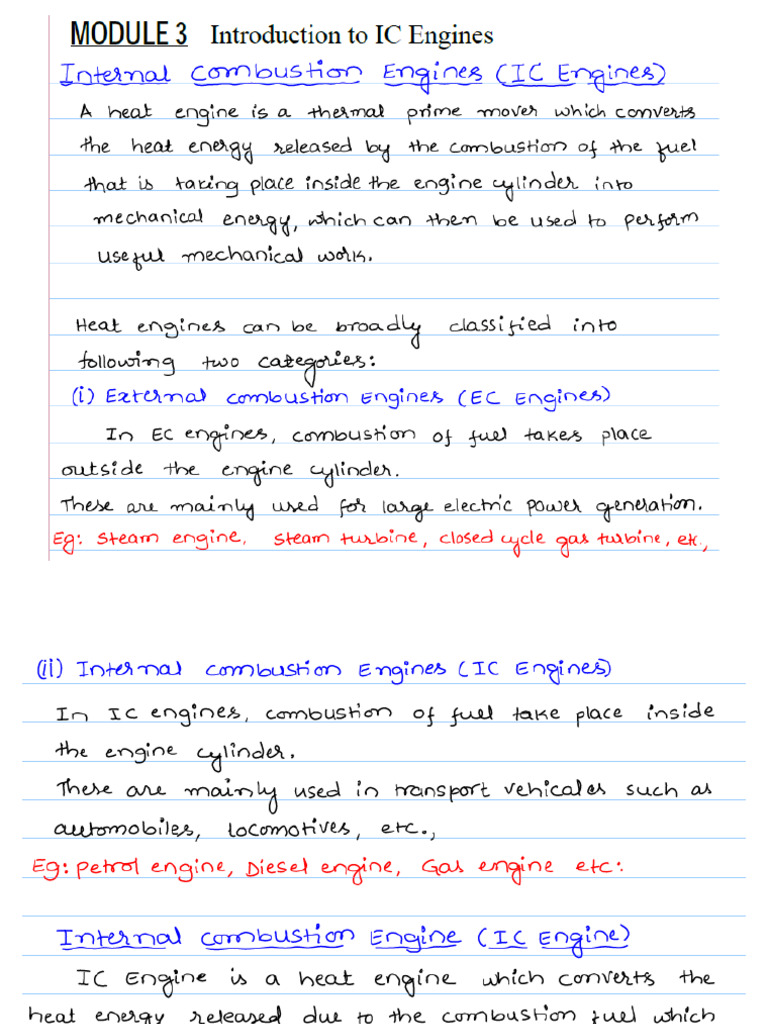 MODULE 3 Introduction to IC Engines
Internal Combustion Engines (IC Engines)
A heat engine is a thermal prime mover which converts
the heat energy released by the combustion of the fuel
that is taking place inside the engine cylinder into
mechanical energy, which can then be used to perform
useful mechanical work.
Heat engines can be broadly classified into
following two categories:
(i) External combustion Engines (EC Engines)
In EC engines, combustion of fuel takes place
outside the engine cylinder.
These are mainly used for large electric power generation.
Eg: Steam engine, steam turbine, closed cycle gas turbine, etc.,
(ii) Internal combustion Engines (IC Engines)
In IC engines, combustion of fuel take place inside
the engine cylinder.
These are mainly used in transport vehicales such as
automobiles, locomotives, etc.,
Eg: Petrol engine, Diesel engine, Gas engine etc:
Internal combustion Engine (IC Engine)
IC Engine is a heat engine which converts the
heat energy released due to the combustion fuel which